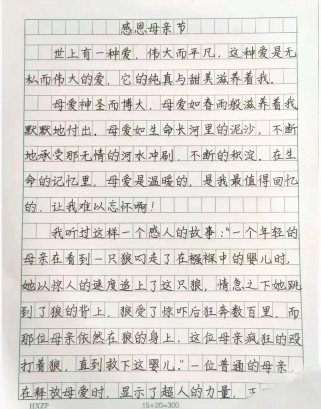 感恩母亲节
世上有一种爱，伟大而平凡，这种爱是无
私而伟大的爱，它的纯真与甜美滋养着我。
母爱神圣而博大，母爱如春雨般滋养着我
默默地付出，母爱如生命长河里的泥沙，不断
地承受那无情的河水冲刷，不断的积淀，在生
命的记忆里，母爱是温暖的，是我最值得回忆
的，让我难以忘怀啊！
我听过这样一个感人的故事："一个年轻的
母亲在看到一只狼叼走了在襁褓中的婴儿时，
她以惊人的速度追上了这只狼，情急之下她跳
到了狼的背上，狼受了惊吓后狂奔数百里，而
那位母亲依然在狼的身上，这位母亲疯狂的殴
打着狼，直到救下这婴儿。"一位普通的母亲，
在释放母爱时，显示了超人的力量，正
HXZP
15×20=300